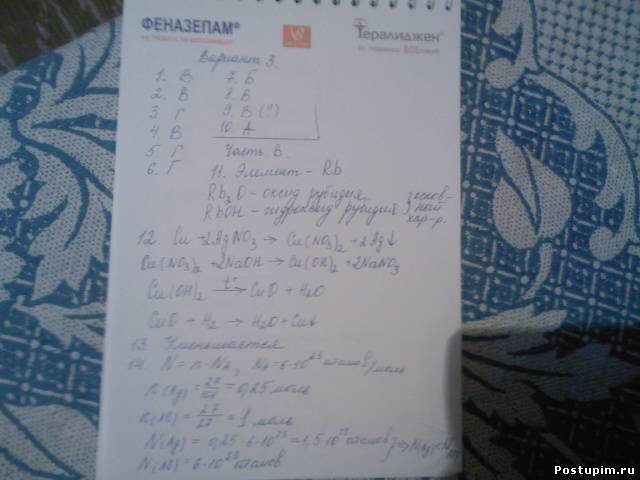 ФЕНАЗЕПАМ®
Тералиджен®
Вариант 3.
1. В 7. Б
2. В 8. В
3. Г 9. В (?)
4. В 10. А
5. Г Часть В.
6. Г 11. Элемент - Rb
Rb₂O - оксид рубидия
RbOH - гидроксид рубидия
основ-
ный
хар-р.
12. Cu + 2AgNO₃ → Cu(NO₃)₂ + 2Ag↓
Cu(NO₃)₂ + 2NaOH → Cu(OH)₂ + 2NaNO₃
Cu(OH)₂ →t° CuO + H₂O
CuO + H₂ → H₂O + Cu↓
13. Уменьшается
14. N = n · Nₐ, Nₐ = 6·10²³ атомов/моль
n(Ag) = 27/108 = 0,25 моль
n(Al) = 27/27 = 1 моль
N(Ag) = 0,25 · 6·10²³ = 1,5·10²³ атомов
N(Al) = 6·10²³ атомов
Postupim.ru